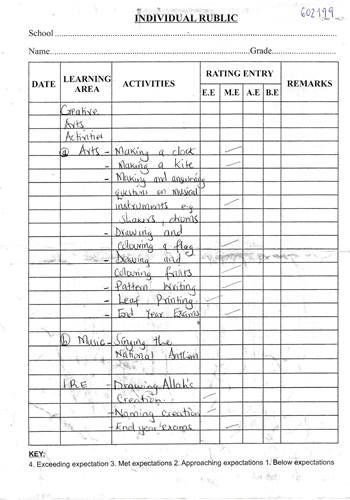 602199
INDIVIDUAL RUBLIC
School
Name Grade
DATE LEARNING AREA ACTIVITIES RATING ENTRY REMARKS
E.E M.E A.E B.E
Creative
Arts
Activities
(a) Arts - Making a clock
- Making a kite
- Making and answering
questions on musical
instruments e.g
shakers, drums
- Drawing and
Colouring a flag
- Drawing and
Colouring fruits
- Pattern Writing
- Leaf Printing
- End Year Exams
(b) Music - Singing the
National Anthem
I.R.E - Drawing Allah's
Creation
- Naming Creation
- End year exams
KEY:
4. Exceeding expectation 3. Met expectations 2. Approaching expectations 1. Below expectations